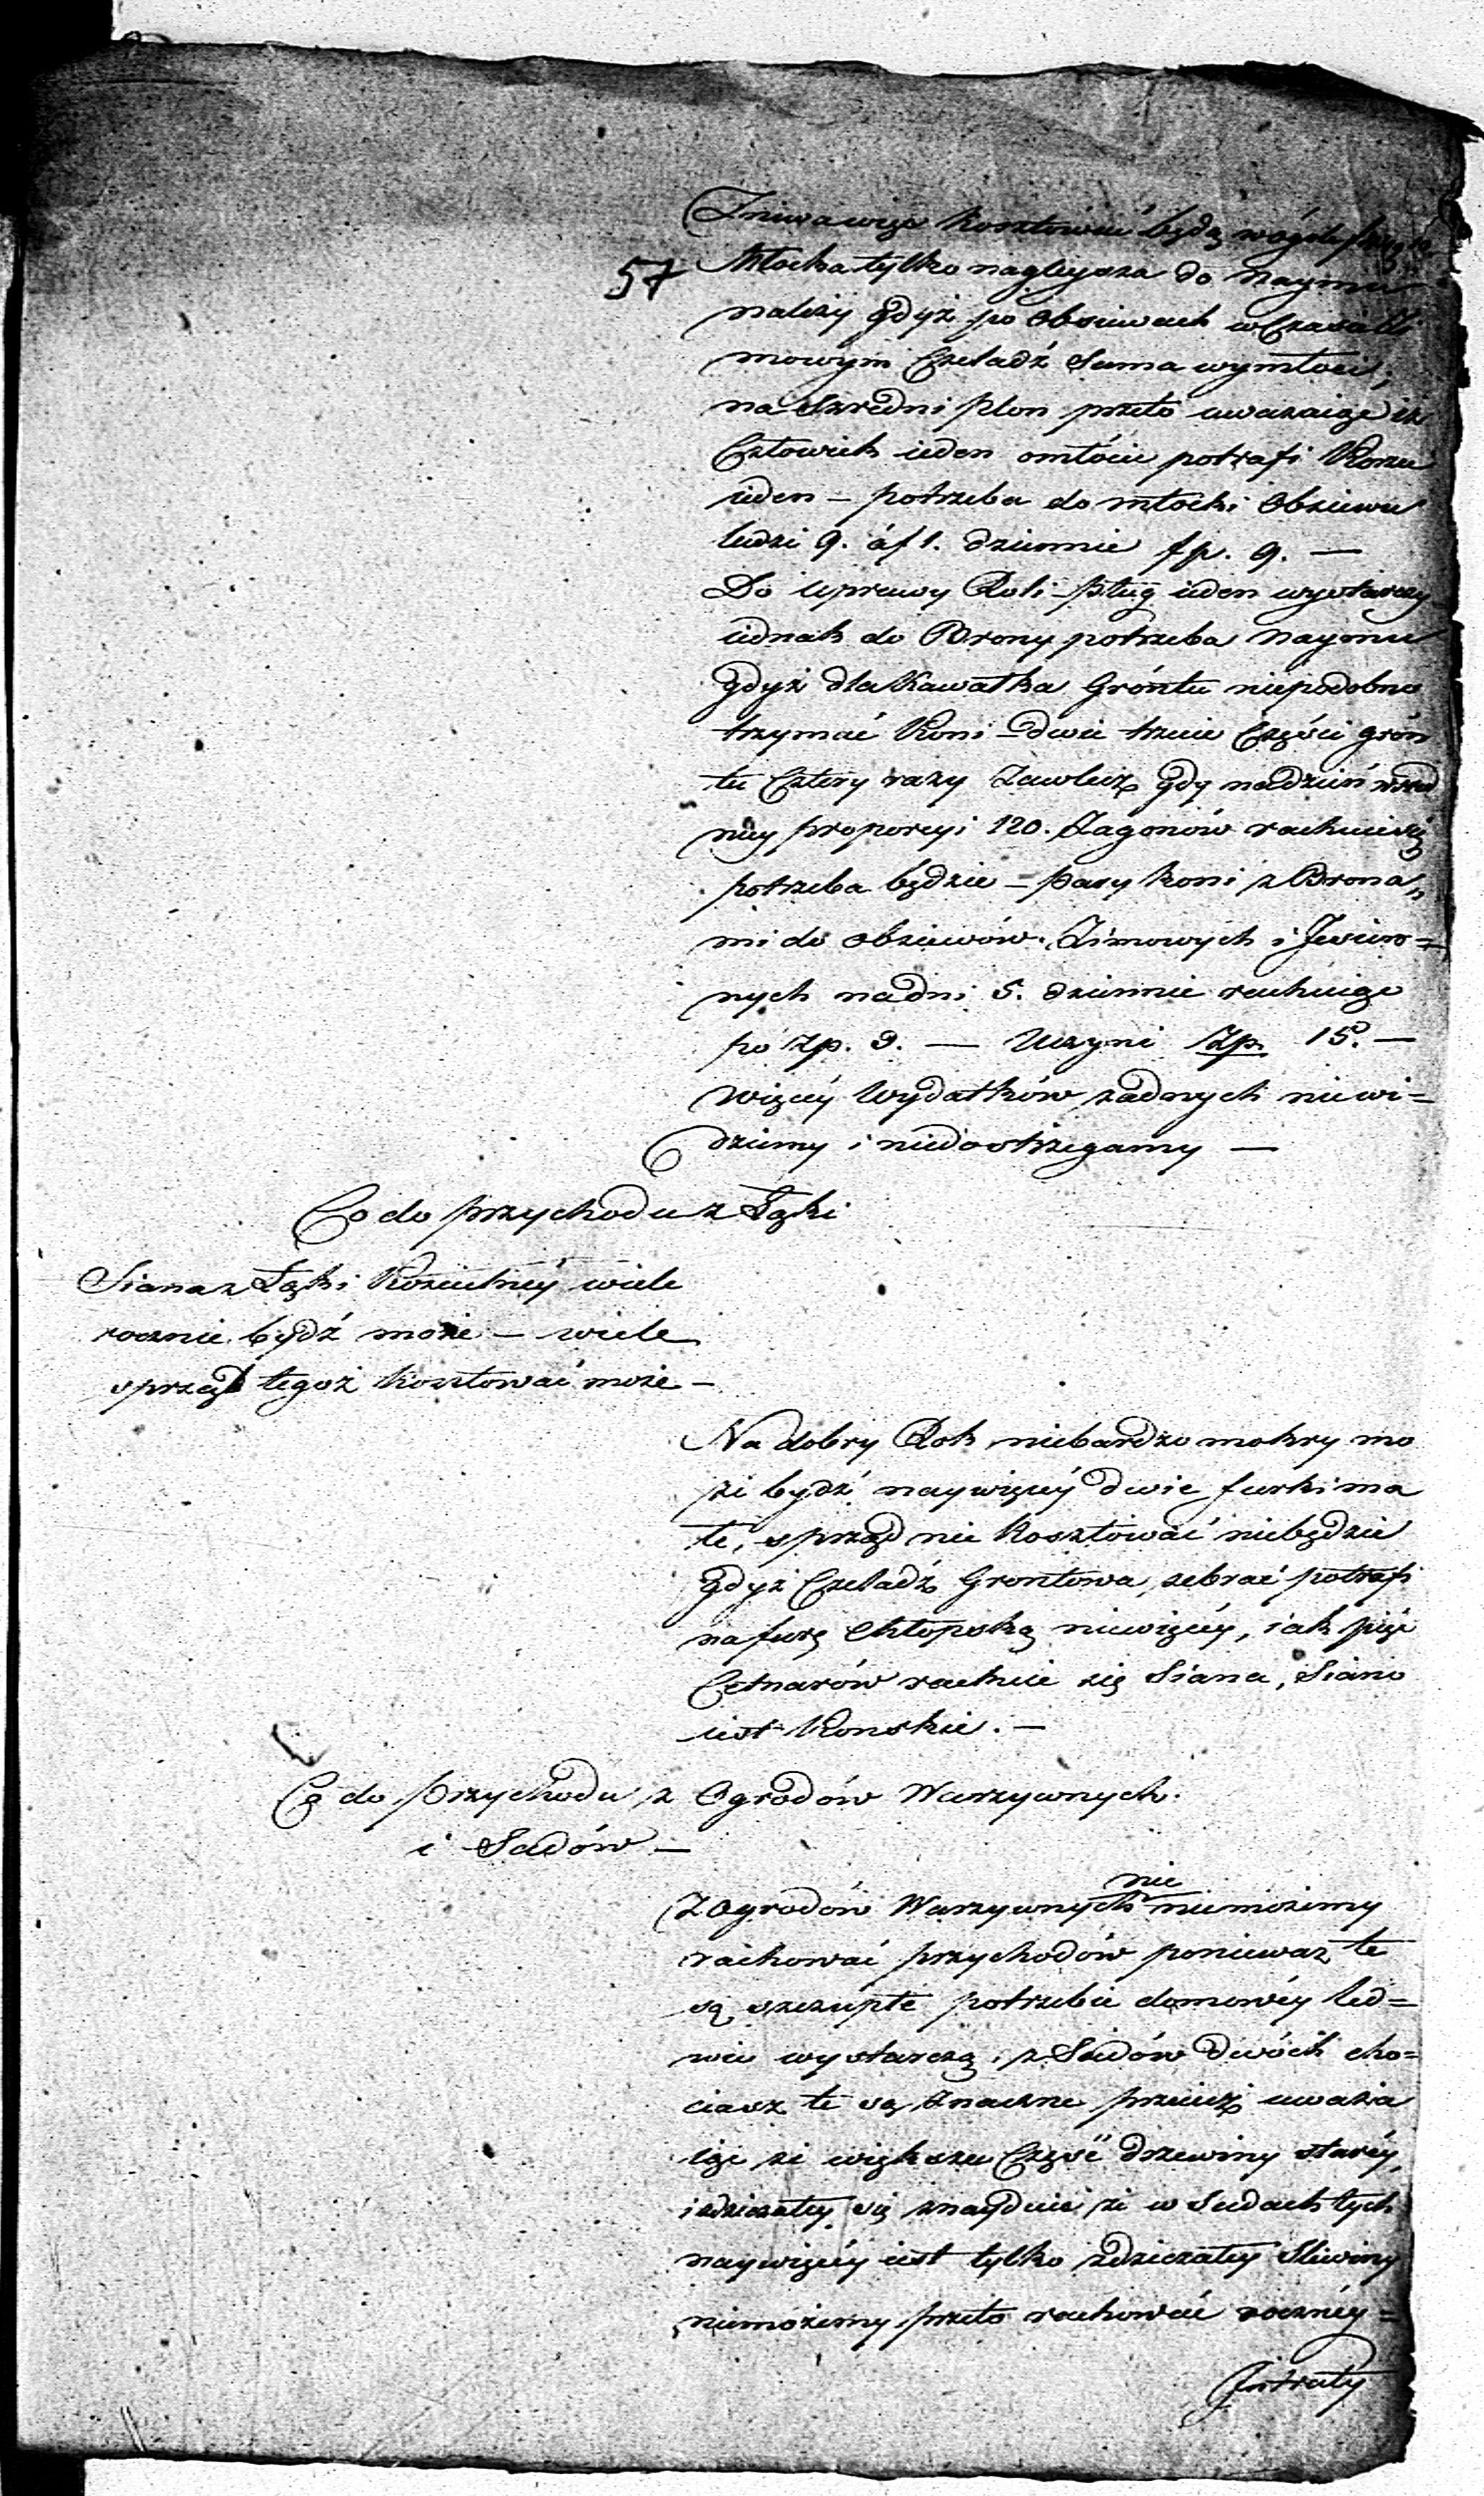 Zniwa więc kosztować będą wogóle
57 Młocka tylko nagleysza do Naymu
należy gdyż po Obsiewach w Czasie Zi
mowym Czeladź sama wymłoci;
na szredni plon przeto uwazaiąc iż
Człowiek ieden omłócić potrafi Korzec
ieden – potrzeba do młocki Obsiewu
ludzi 9. á f 1. dziennie fp. 9. —
Do Uprawy Roli – pług ieden wystarczy
iednak do Brony potrzeba Naymu
gdyż dla Kawałka Gróntu niepodobno
trzymać Koni – dwie trzcie Części grón
tu Cztery razy Zawlecz, gdy nadzień wśred
niey proporcyi 120. Zagonów rachuie się
potrzeba będzie – pary koni z Brona„
mi do obsiewów Zimowych i Jesien=
nych nadni 5. dziennie rachuiąc
po Zp. 3. — Uczyni Zp. 15. —
więcéy Wydatków żadnych niewi=
dziemy i niedostrzegamy —
Co do przychodu z Łąki
Siana z Łąki Rozciętnéy wiele
rocznie bydź może – wiele
sprzęt tegoż kosztować może –
Na dobry Rok niebardzo mokry mo
że bydź naywięcéy dwie furki ma
łé, sprząd nie Kosztować niebędzie
gdyż Czeladź Grontowa zebrać potrafi
na furę Chłopską niewięcéy, iak pięć
Cetnarów rachuie się Siana, Siano
iest Konskie. –
Co do Przychodu z Ogrodów Warzywnych.
i Sadów –
Z Ogrodów Warzywnych nie niemożemy
rachować przychodów ponieważ te
są szczupłe potrzebie domowéy led=
wie wystarczą, z Sadów dwóch cho=
ciasz te są znaczne przecież uważa
iąc że większa Część drzewiny staréy,
i zdziczałey się znayduie że w Sadach tych
naywięcéy iest tylko zdziczałéy Śliwiny
niemożemy przeto rachować rocznéy =
Jntraty